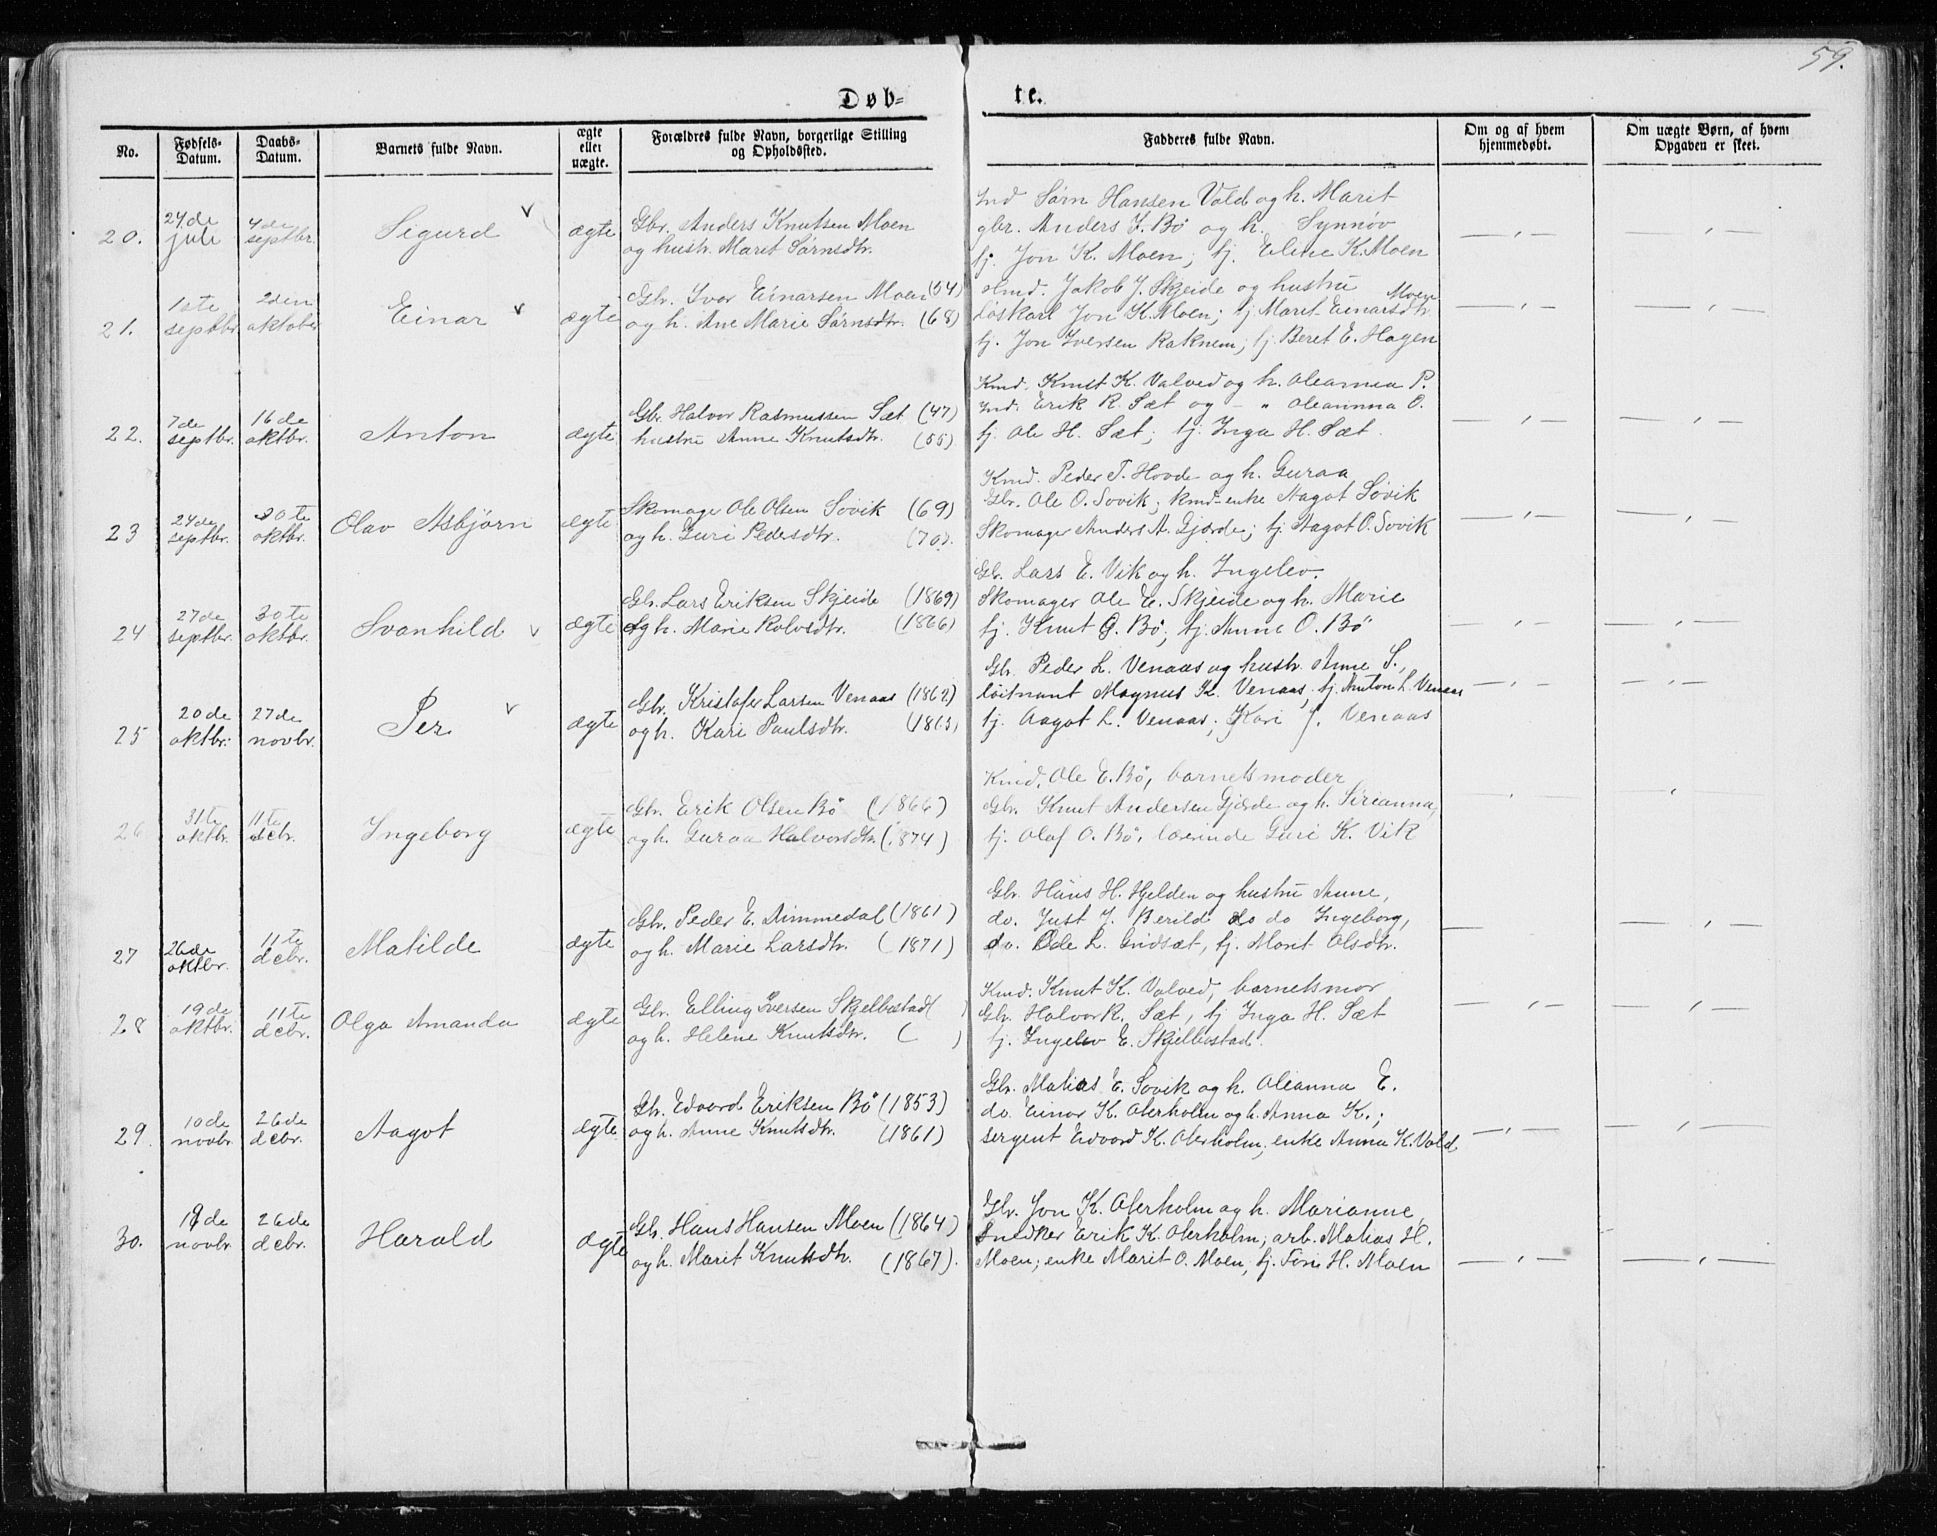 59.
Døb=
te.
No.
Fødsels-
Datum.
Daabs-
Datum.
Barnets fulde Navn.
ægte
eller
uægte.
Forældres fulde Navn, borgerlige Stilling
og Opholdssted.
Fadderes fulde Navn.
Om og af hvem
hjemmedøbt.
Om uægte Børn, af hvem
Opgaven er skeet.
20.
24de
juli
4de
septbr.
Sigurd
ægte
Gbr. Anders Knutsen Moen
og hustr. Marit Sørnsdtr.
Ind Sørn Hansen Vold og h. Marit
gbr. Anders J. Bö og h. Synnøv
tj. Jon K. Moen; tj. Eline K. Moen
21.
1ste
septbr
2den
oktober
Einar
ægte
Gbr. Ivar Einarsen Moen (64)
og h. Ane Marie Sørnsdtr. (68)
Jakob J. Skjeide og hustru
Løskarl Jon K. Moen; tj Marit Einarsdtr. Moen
tj. Jon Iversen Raknem; tj. Beret E. Hagen
22.
7de
septbr.
16de
oktbr.
Anton
ægte
Gbr. Halvor Rasmussen Sæt (47)
hustru Anne Knutsdtr. (55)
Kmd. Knut K. Valved og h. Oleanna P.
Ind. Erik R. Sæt og - " Oleannna O.
tj. Ole H. Sæt; tj. Inga H. Sæt
23
24de
septbr.
30te
oktbr.
Olav Asbjørn
ægte
Skomager Ole Olsen Sovik (69)
og h. Guri Pedersdtr. (70).
Kmd. Peder T. Hovde og h. Guraa
Gbr. Ole O. Sovik; kmd-enke Aagot Søvik
Skomager Anders A. Gjærde; tj. Aagot O. Sovik
24
27de
septbr.
30te
oktbr.
Svanhild
ægte
Gbr. Lars Eriksen Skjeide (1869)
og h. Marie Rolvsdtr. (1866)
Gb. Lars E. Vik og h. Ingelev.
Skomager Ole E. Skjeide og h. Marie
tj. Knut O. Bö; tj. Anne O. Bö
25
20de
oktbr.
27de
novbr.
Per
ægte
Gbr. Kristofer Larsen Venaas (1862)
og h. Kari Paulsdtr. (1863)
Gbr Peder L. Venaas og hustr. Anne S.,
løitnant Magnus K. Venaas, tj. Anton L. Venaas
tj. Aagot L. Venaas; Kari J. Venaas
26
31te
oktbr.
11te
dcbr.
Ingeborg
ægte
Gbr. Erik Olsen Bö (1866)
og h. Guraa Halvorsdtr. (1874)
Kmd. Ole E. Bö, barnets moder
Gbr. Knut Andersen Gjærde og h. Sirianna,
tj. Olaf O. Bö, lærerinde Guri K. Vik
27
26de
oktbr.
11te
dcbr.
Matilde
ægte
Gbr. Peder E. Dimmedal (1861)
og h. Marie Larsdtr. (1871)
Gbr. Hans H. Hjelden og hustru Anne,
do. Just J. Berild do do Ingeborg,
do. Ole L. Gridsæt, tj. Marit Olsdtr.
28
19de
oktbr.
11te
dcbr.
Olga Amanda
ægte
Gbr. Elling Iversen Skjelbostad ( )
og h. Helene Knutsdtr. ( )
Kmd. Knut K. Valved, barnets mor
Gbr. Halvor R. Sæt, tj Inga H. Sæt
tj. Ingelev E. Skjelbostad.
29.
10de
novbr.
26de
dcbr.
Aagot
ægte
Gbr. Edvard Eriksen Bö (1853)
og h. Anne Knutsdtr. (1861)
Gbr. Matias E. Sovik og h. Oleanna E.
do. Einar K. Oterholm og h. Anna K.;
sergent Edvard K. Oterholm, enke Anna K. Vold
30.
19de
novbr.
26de
dcbr.
Harald
ægte
Gbr. Hans Hansen Moen (1864)
og h. Marit Knutsdtr. (1867).
Gbr. Jon K. Oterholm og h. Marianne,
Snedker Erik K. Oterholm; arb. Matias H.
Moen; enke Marit O. Moen; tj. H. Moen